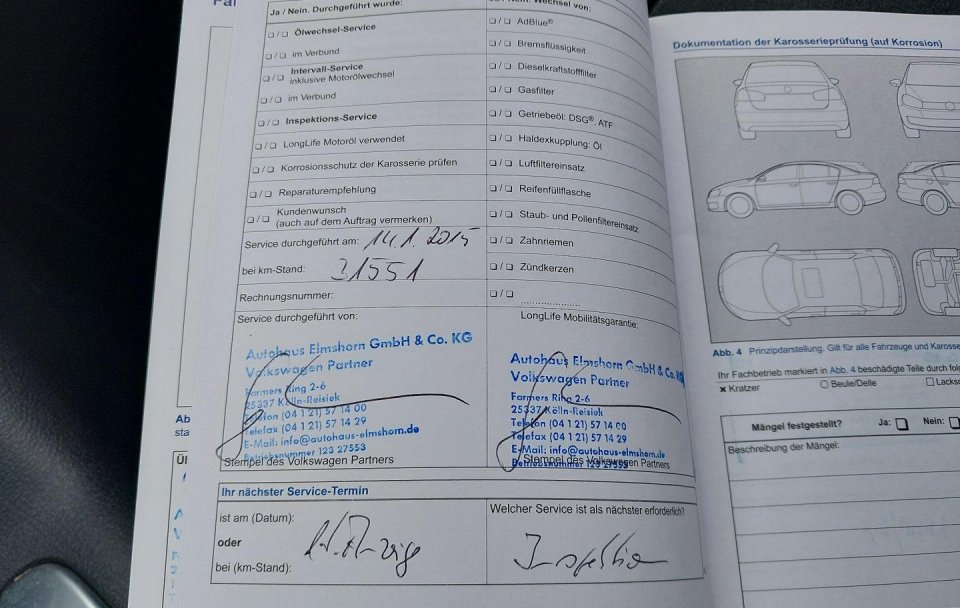 Ja / Nein. Durchgeführt wurde:
❑ / ❑ Ölwechsel-Service
❑ / ❑ im Verbund
❑ / ❑ Intervall-Service
inklusive Motorölwechsel
❑ / ❑ im Verbund
❑ / ❑ Inspektions-Service
❑ / ❑ LongLife Motoröl verwendet
❑ / ❑ Korrosionsschutz der Karosserie prüfen
❑ / ❑ Reparaturempfehlung
❑ / ❑ Kundenwunsch
(auch auf dem Auftrag vermerken)
Service durchgeführt am: 14.1.2015
bei km-Stand: 31551
Rechnungsnummer:
Service durchgeführt von:
Autohaus Elmshorn GmbH & Co. KG
Volkswagen Partner
Farmers Ring 2-6
25337 Kölln-Reisiek
Telefon (04 1 21) 57 14 00
Telefax (04 1 21) 57 14 29
E-Mail: info@autohaus-elmshorn.de
Betriebsnummer 123 27553
Stempel des Volkswagen Partners
Ja / Nein. Wechsel von:
❑ / ❑ AdBlue®
❑ / ❑ Bremsflüssigkeit
❑ / ❑ Dieselkraftstofffilter
❑ / ❑ Gasfilter
❑ / ❑ Getriebeöl: DSG®, ATF
❑ / ❑ Haldexkupplung: Öl
❑ / ❑ Luftfiltereinsatz
❑ / ❑ Reifenfüllflasche
❑ / ❑ Staub- und Pollenfiltereinsatz
❑ / ❑ Zahnriemen
❑ / ❑ Zündkerzen
❑ / ❑ ....................
LongLife Mobilitätsgarantie:
Autohaus Elmshorn GmbH & Co. KG
Volkswagen Partner
Farmers Ring 2-6
25337 Kölln-Reisiek
Telefon (04 1 21) 57 14 00
Telefax (04 1 21) 57 14 29
E-Mail: info@autohaus-elmshorn.de
Betriebsnummer 123 27553
Stempel des Volkswagen Partners
Ihr nächster Service-Termin
ist am (Datum):
oder
bei (km-Stand):
Welcher Service ist als nächster erforderlich?
Inspektion
Dokumentation der Karosserieprüfung (auf Korrosion)
Abb. 4 Prinzipdarstellung. Gilt für alle Fahrzeuge und
Ihr Fachbetrieb markiert in Abb. 4 beschädigte Teile durch
× Kratzer ○ Beule/Delle ❑
Mängel festgestellt? Ja: ❑ Nein: ❑
Beschreibung der Mängel: